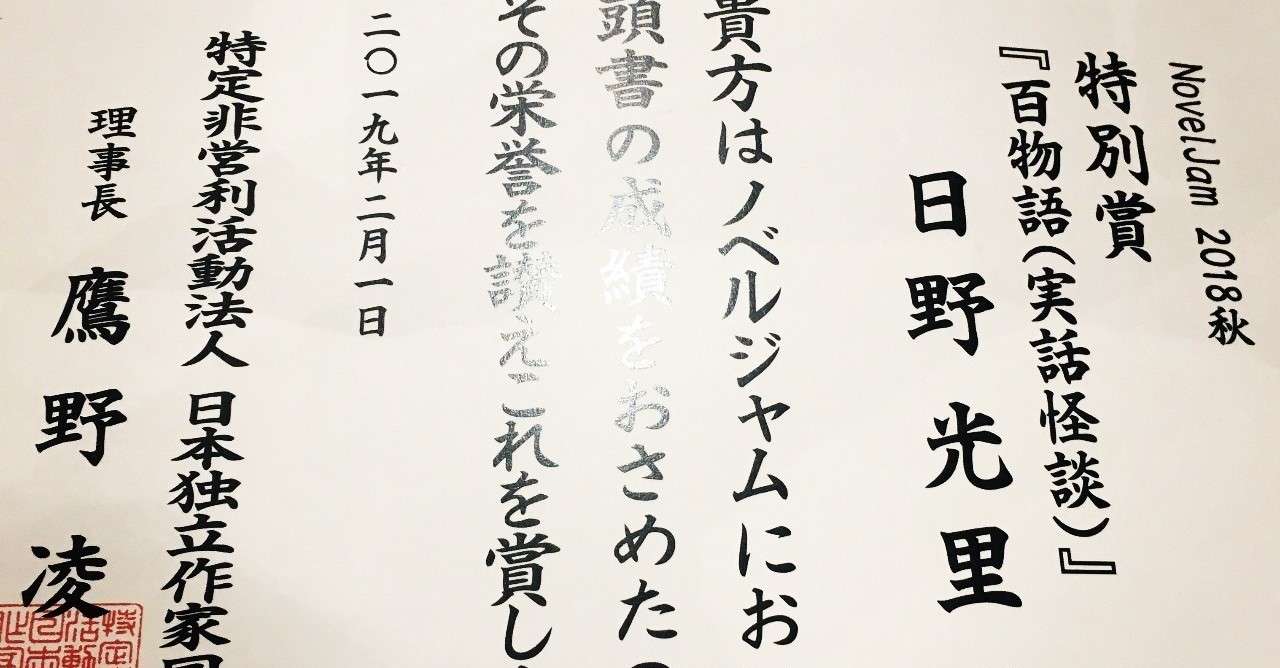 NovelJam 2018秋
特別賞
『百物語（実話怪談）』
日野光里
貴方はノベルジャムにお
頭書の成績をおさめた
その栄誉を讃えこれを賞し
二〇一九年二月一日
特定非営利活動法人 日本独立作家
理事長 鷹野凌